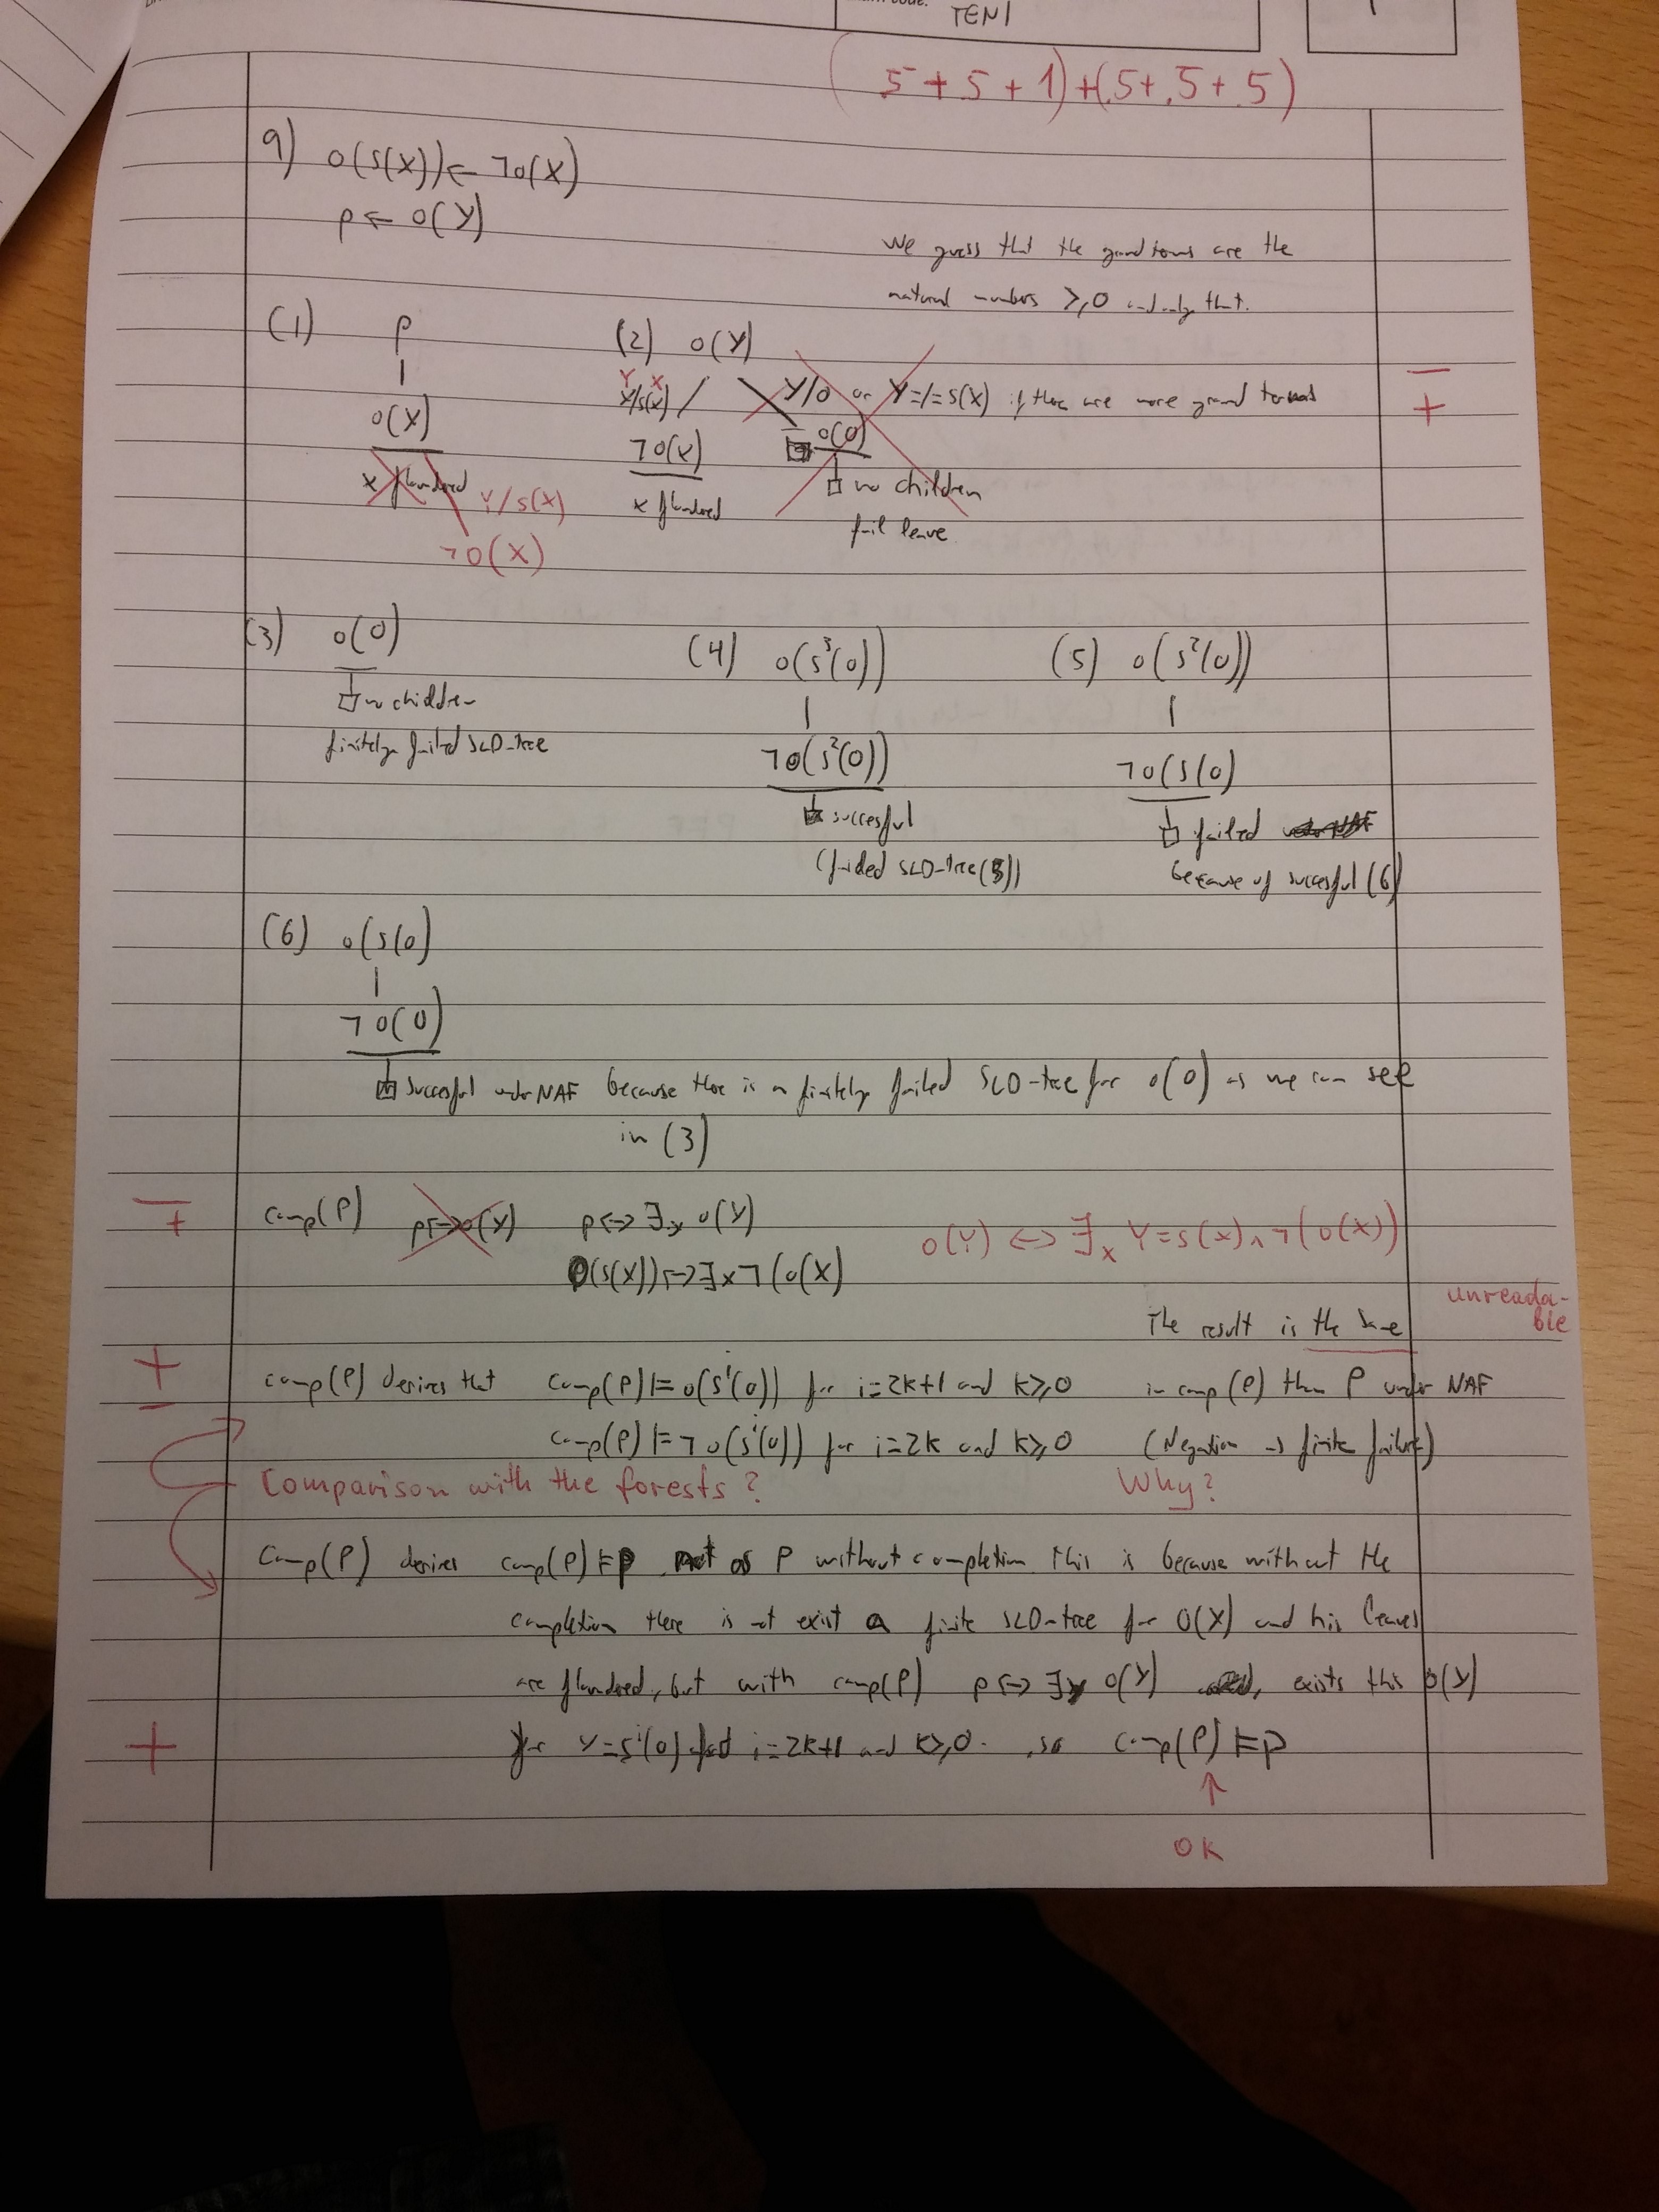 TEN1
(5+5+1)+(.5+.5+.5)
9) o(s(X)) ← ¬o(X)
p ← o(Y)
We guess that the ground terms are the
natural numbers ≥0 and only that.
(1) p
o(X)
x floundered
Y/s(X)
¬o(X)
(2) o(Y)
Y X
Y/0 or Y=/=s(X) if there are more ground terms
¬o(X)
x floundered
o(0)
no children
fail leave
−
+
(3) o(0)
no children
finitely failed SLD-tree
(4) o(s³(0))
¬o(s²(0))
succesful
(failed SLD-tree(5))
(5) o(s²(0))
¬o(s(0)
failed
because of succesful (6)
(6) o(s(0)
¬o(0)
Succesful under NAF because there is a finitely failed SLD-tree for o(0) as we can see
in (3)
comp(P) p↔o(Y) p↔∃y o(Y)
O(s(X))↔∃x¬(o(X)
o(Y) ↔ ∃x Y=s(x)∧¬(o(x))
The result is the same
unreada-
ble
comp(P) derives that comp(P)⊨o(sⁱ(0)) for i=2k+1 and k≥0 in comp(P) than P under NAF
comp(P)⊨¬o(sⁱ(0)) for i=2k and k≥0 (Negation as finite failure)
Comparison with the forests? Why?
Comp(P) derives comp(P)⊨p not as P without completion this is because without the
completion there is not exist a finite SLD-tree for O(X) and his leaves
are floundered, but with comp(P) p↔∃y o(Y) exists this o(Y)
for Y=sⁱ(0) i=2k+1 and k≥0. so comp(P)⊨p
OK